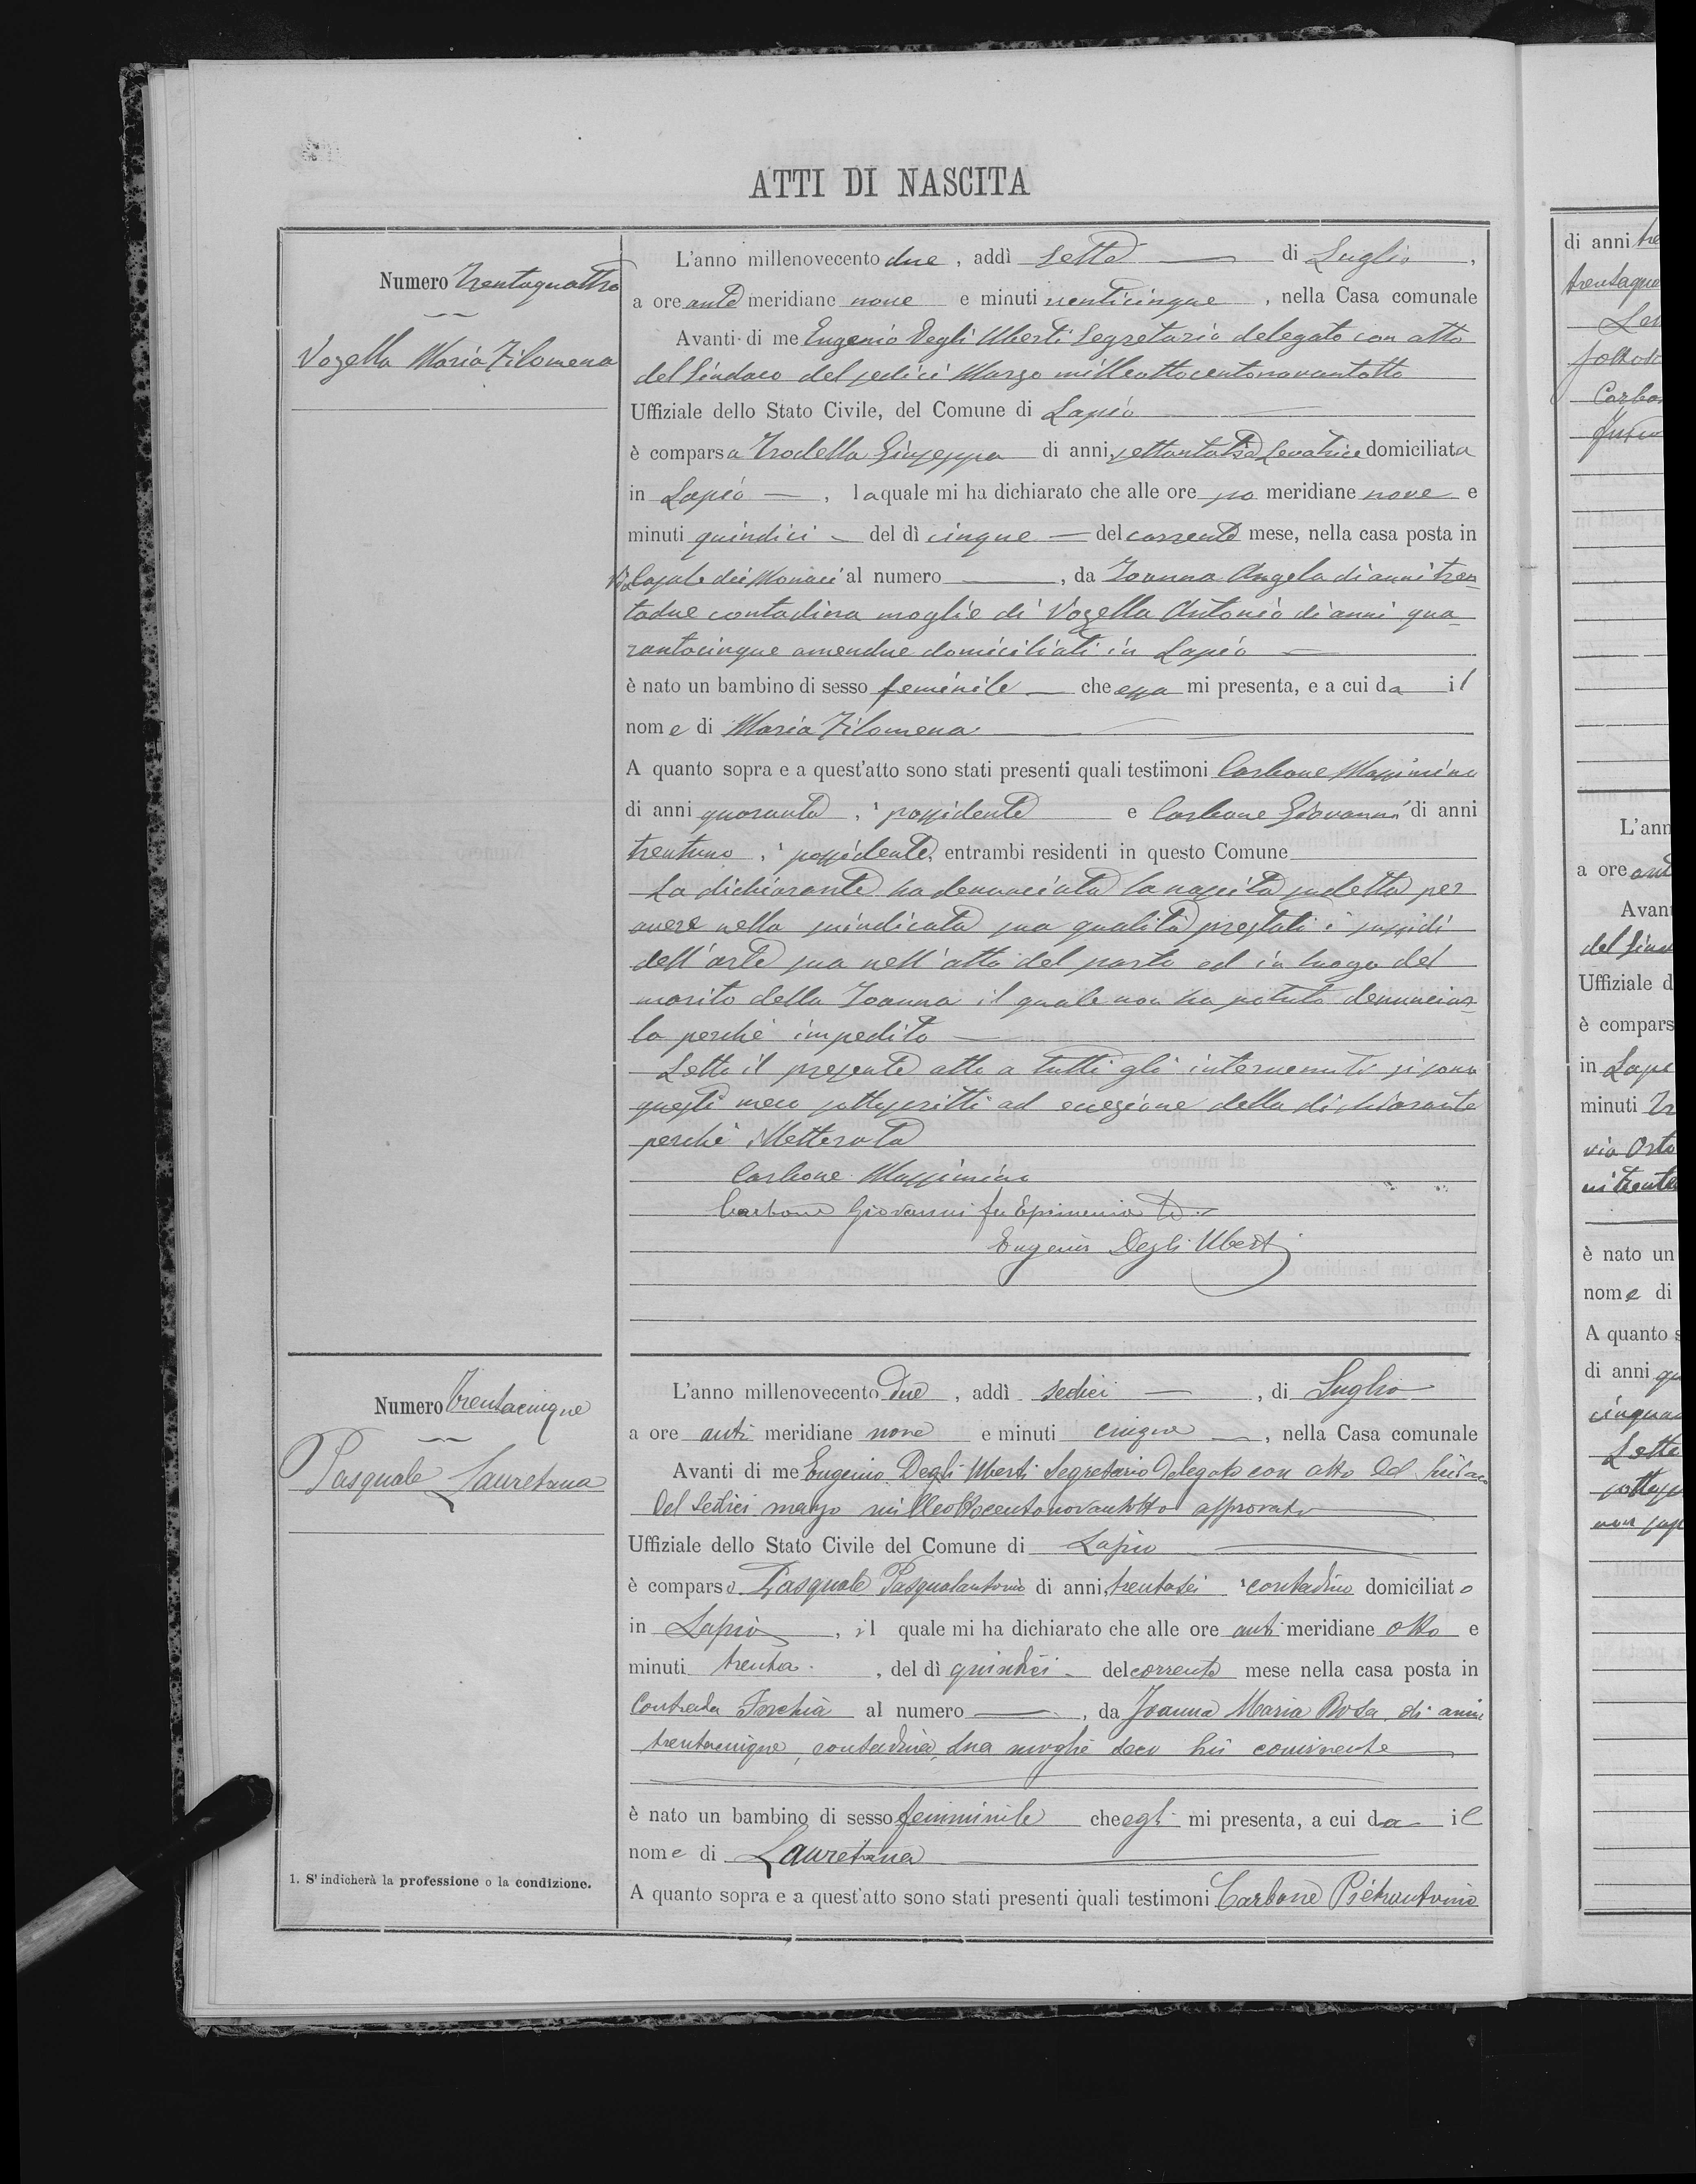 ATTI DI NASCITA
Numero Trentaquattro
Vozella Maria Filomena
L'anno millenovecento due, addì sette di Luglio,
a ore ante meridiane nove e minuti venticinque, nella Casa comunale
Avanti di me Eugenio Degli Uberti Segretario delegato con atto
del Sindaco del sedici Marzo milleottocentonovantotto
Uffiziale dello Stato Civile, del Comune di Lapio
è comparsa Trodella Giuseppa di anni settantatre Levatrice domiciliata
in Lapio, la quale mi ha dichiarato che alle ore po meridiane nove e
minuti quindici del dì cinque del corrente mese, nella casa posta in
Via Casale dei Monaci al numero , da Ioanna Angela di anni tren-
tadue contadina moglie di Vozella Antonio di anni qua-
rantacinque amendue domiciliati in Lapio
è nato un bambino di sesso feminile che essa mi presenta, e a cui da il
nome di Maria Filomena
A quanto sopra e a quest'atto sono stati presenti quali testimoni Carbone Massimino
di anni quaranta, 1 possidente e Carbone Giovanni di anni
trentuno, 1 possidente, entrambi residenti in questo Comune
La dichiarante ha denunciata la nascita sudetta per
avere nella suindicata sua qualità prestati i sussidi
dell'arte sua nell'atto del parto ed in luogo del
marito della Ioanna il quale non ha potuto denunciar-
la perchè impedito
Letto il presente atto a tutti gli intervenuti si sono
questi meco sottoscritti ad eccezione della dichiarante
perchè illetterata
Carbone Massimino
Carbone Giovanni fu Epimenio
Eugenio Degli Uberti
Numero trentacinque
Pasquale Lauretana
L'anno millenovecento due, addì sedici, di Luglio
a ore anti meridiane nove e minuti cinque, nella Casa comunale
Avanti di me Eugenio Degli Uberti Segretario Delegato con atto del Sindaco
del Sedici marzo milleottocentonovantotto approvato
Uffiziale dello Stato Civile del Comune di Lapio
è comparso Pasquale Pasqualantonio di anni trentasei 1 contadino domiciliato
in Lapio, il quale mi ha dichiarato che alle ore anti meridiane otto e
minuti trenta, del dì quindici del corrente mese nella casa posta in
Contrada al numero , da Joanna Maria Rosa di anni
trentacinque, contadina, sua moglie seco lui convivente
è nato un bambino di sesso femminile che egli mi presenta, a cui da il
nome di Lauretana
A quanto sopra e a quest'atto sono stati presenti quali testimoni Carbone Pietrantonio
1. S'indicherà la professione o la condizione.
di anni
L'ann
a ore
Avan
Uffiziale d
è compars
in
minuti
via
è nato un
nome di
A quanto s
di anni